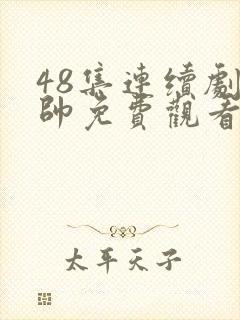 48集連續劇
帥免費觀看
太平天子